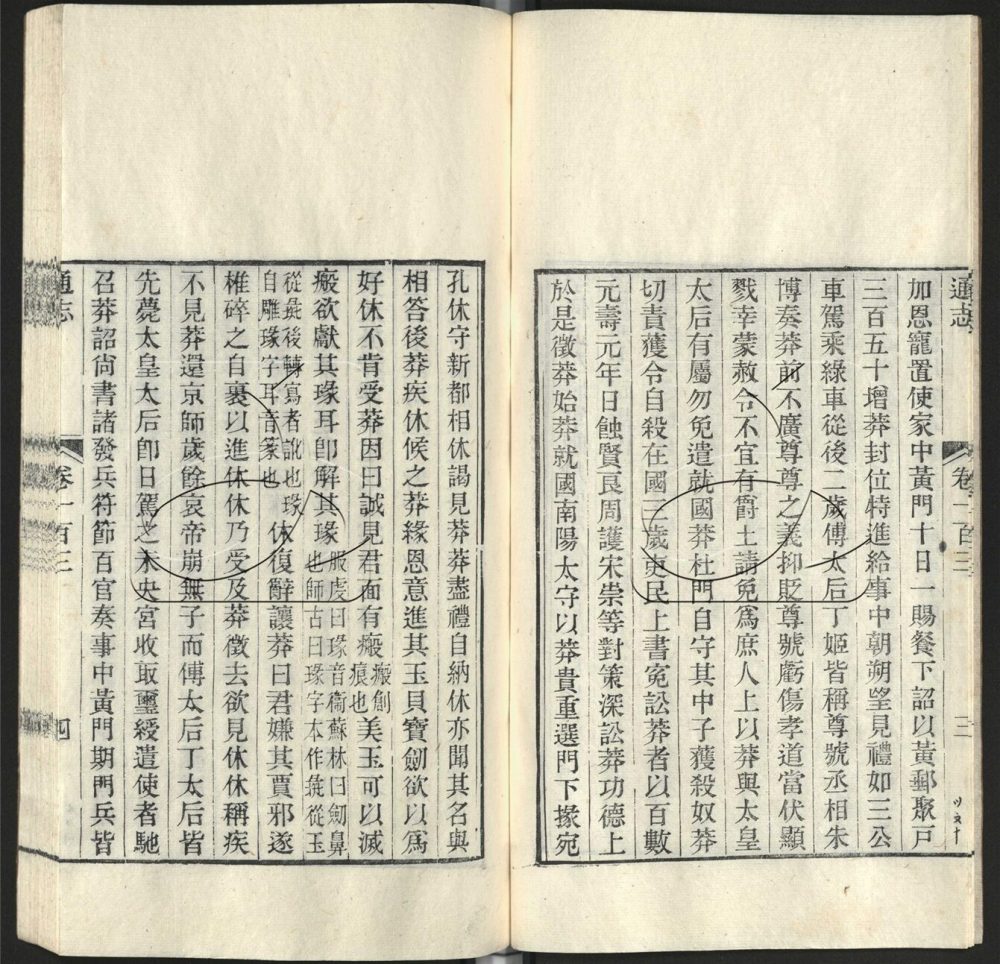 通志 卷一百三 三
加恩寵置使家中黃門十日一賜餐下詔以黃郵聚戶
三百五十增莽封位特進給事中朝朔望見禮如三公
車駕乘綠車從後二歲傅太后丁姬皆稱尊號丞相朱
博奏莽前不廣尊尊之義抑貶尊號虧傷孝道當伏顯
戮幸蒙赦令不宜有爵土請免爲庶人上以莽與太皇
太后有屬勿免遣就國莽杜門自守其中子獲殺奴莽
切責獲令自殺在國三歲吏民上書冤訟莽者以百數
元壽元年日蝕賢良周護宋崇等對策深訟莽功德上
於是徵莽始莽就國南陽太守以莽貴重選門下掾宛
孔休守新都相休謁見莽莽盡禮自納休亦聞其名與
相答後莽疾休候之莽緣恩意進其玉貝寶劒欲以爲
好休不肯受莽因曰誠見君面有瘢瘢創痕也美玉可以滅
瘢欲獻其瑑耳卽解其瑑服虔曰瑑音衞蘇林曰劒鼻也師古曰瑑字本作璏從玉
從彘後轉寫者訛也瑑自雕瑑字耳音篆也休復辭讓莽曰君嫌其賈邪遂
椎碎之自裹以進休休乃受及莽徵去欲見休休稱疾
不見莽還京師歲餘哀帝崩無子而傅太后丁太后皆
先薨太皇太后卽日駕之未央宮收取璽綬遣使者馳
召莽詔尚書諸發兵符節百官奏事中黃門期門兵皆
通志 卷一百三 四